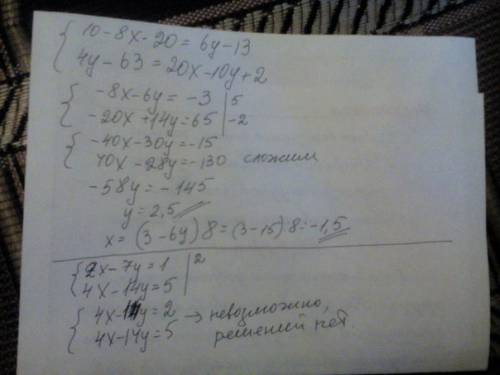 10-8x-20=6y-13
4y-63=20x-10y+2
-8x-6y=-3 | 5
-20x+14y=65 | -2
-40x-30y=-15
40x-28y=-130 сложим
-58y=-145
y=2,5
x=(3-6y):8=(3-15):8=-1,5
2x-7y=1 | 2
4x-14y=5
4x-14y=2 → невозможно,
4x-14y=5 решений нет.